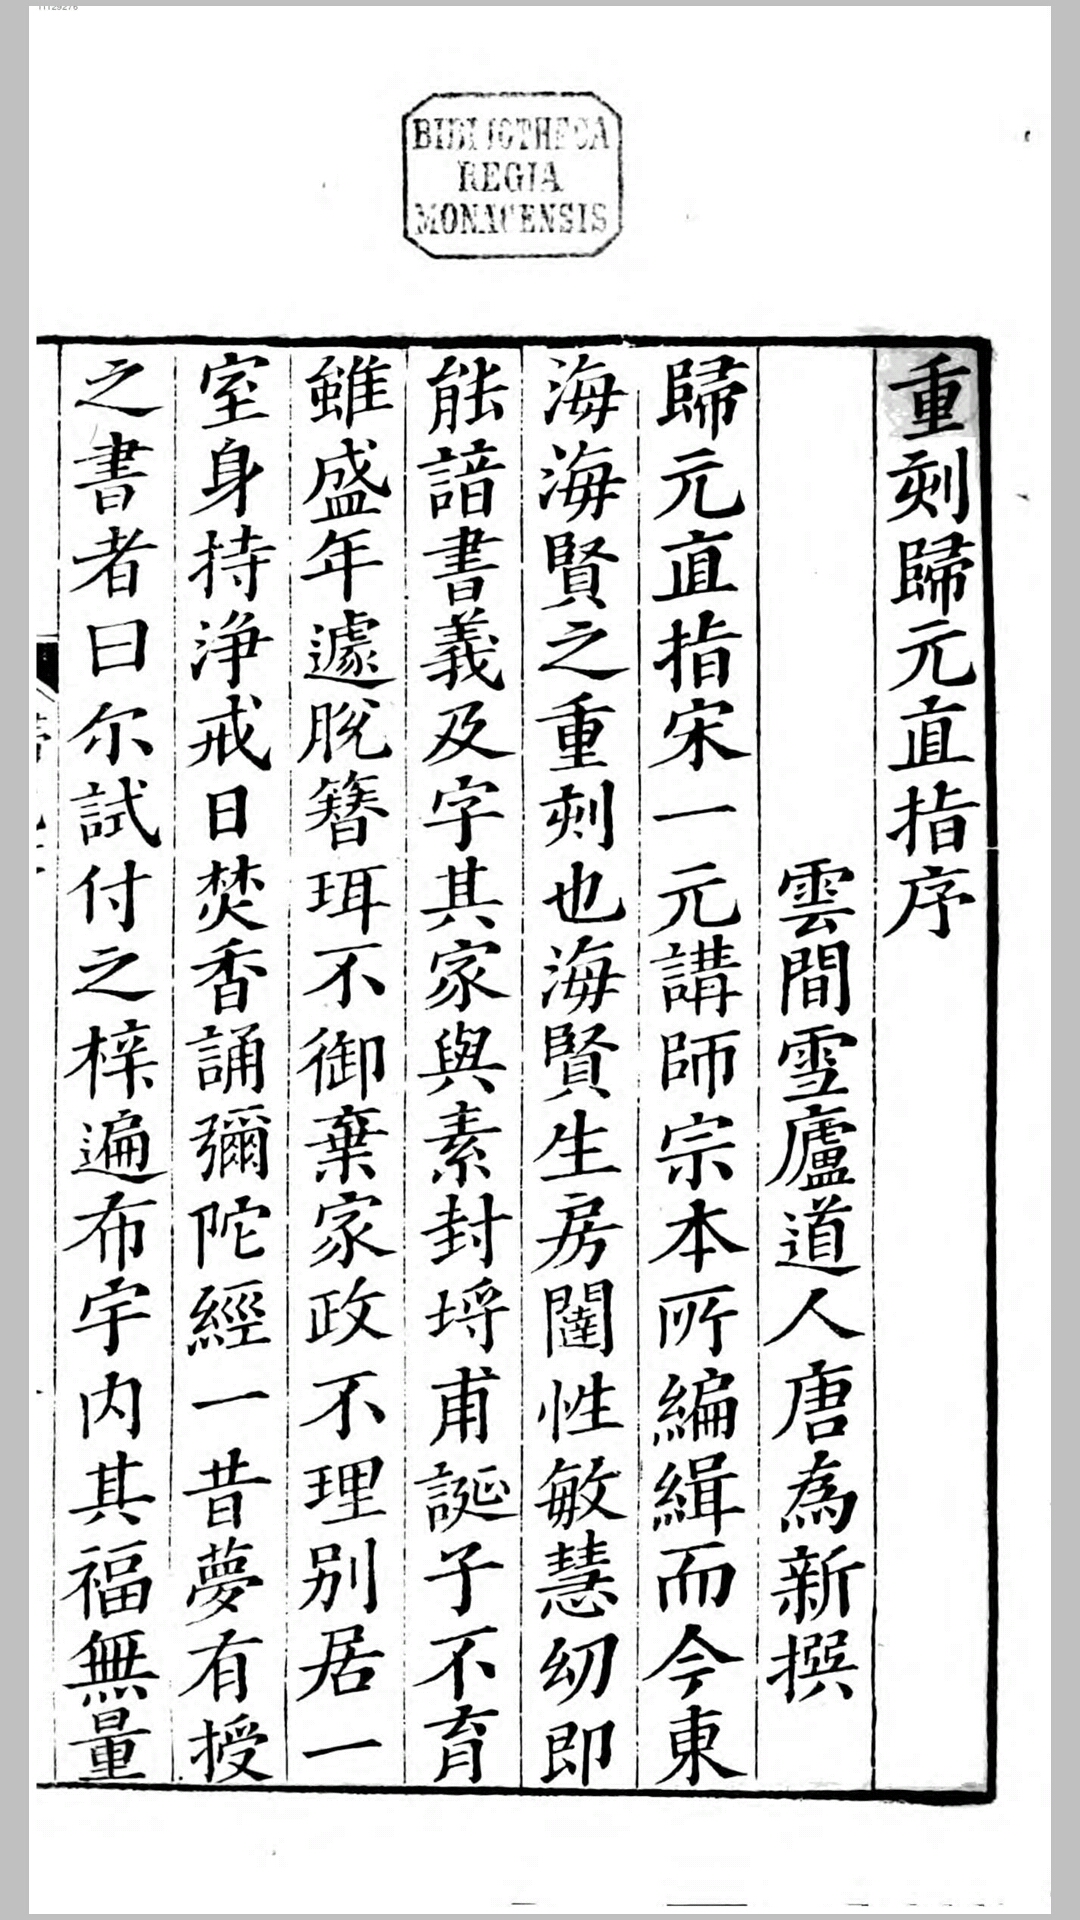 11129276
BIBLIOTHECA
REGIA
MONACENSIS
重刻歸元直指序
雲間雪廬道人唐為新撰
歸元直指宋一元講師宗本所編緝而今東
海海賢之重刻也海賢生房闥性敏慧幼即
能諳書義及字其家與素封埒甫誕子不育
雖盛年遽脫簪珥不御棄家政不理別居一
室身持浄戒日焚香誦彌陀經一昔夢有授
之書者曰尔試付之梓遍布宇内其福無量